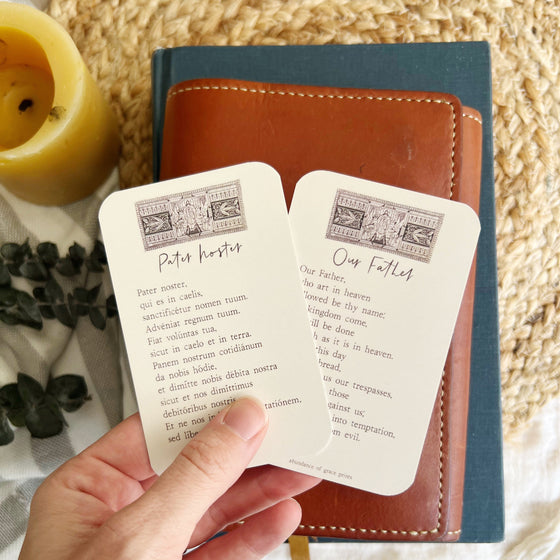 Pater noster
Pater noster,
qui es in caelis,
sanctificétur nomen tuum.
Advéniat regnum tuum.
Fiat voluntas tua,
sicut in caelo et in terra.
Panem nostrum cotidiánum
da nobis hódie,
et dimítte nobis débita nostra
sicut et nos dimíttimus
debitóribus nostris.
Et ne nos
sed líbe
Our Father
Our Father,
who art in heaven
llowed be thy name;
kingdom come,
ill be done
h as it is in heaven.
this day
bread,
us our trespasses,
those
against us;
into temptation,
m evil.
abundance of grace prints